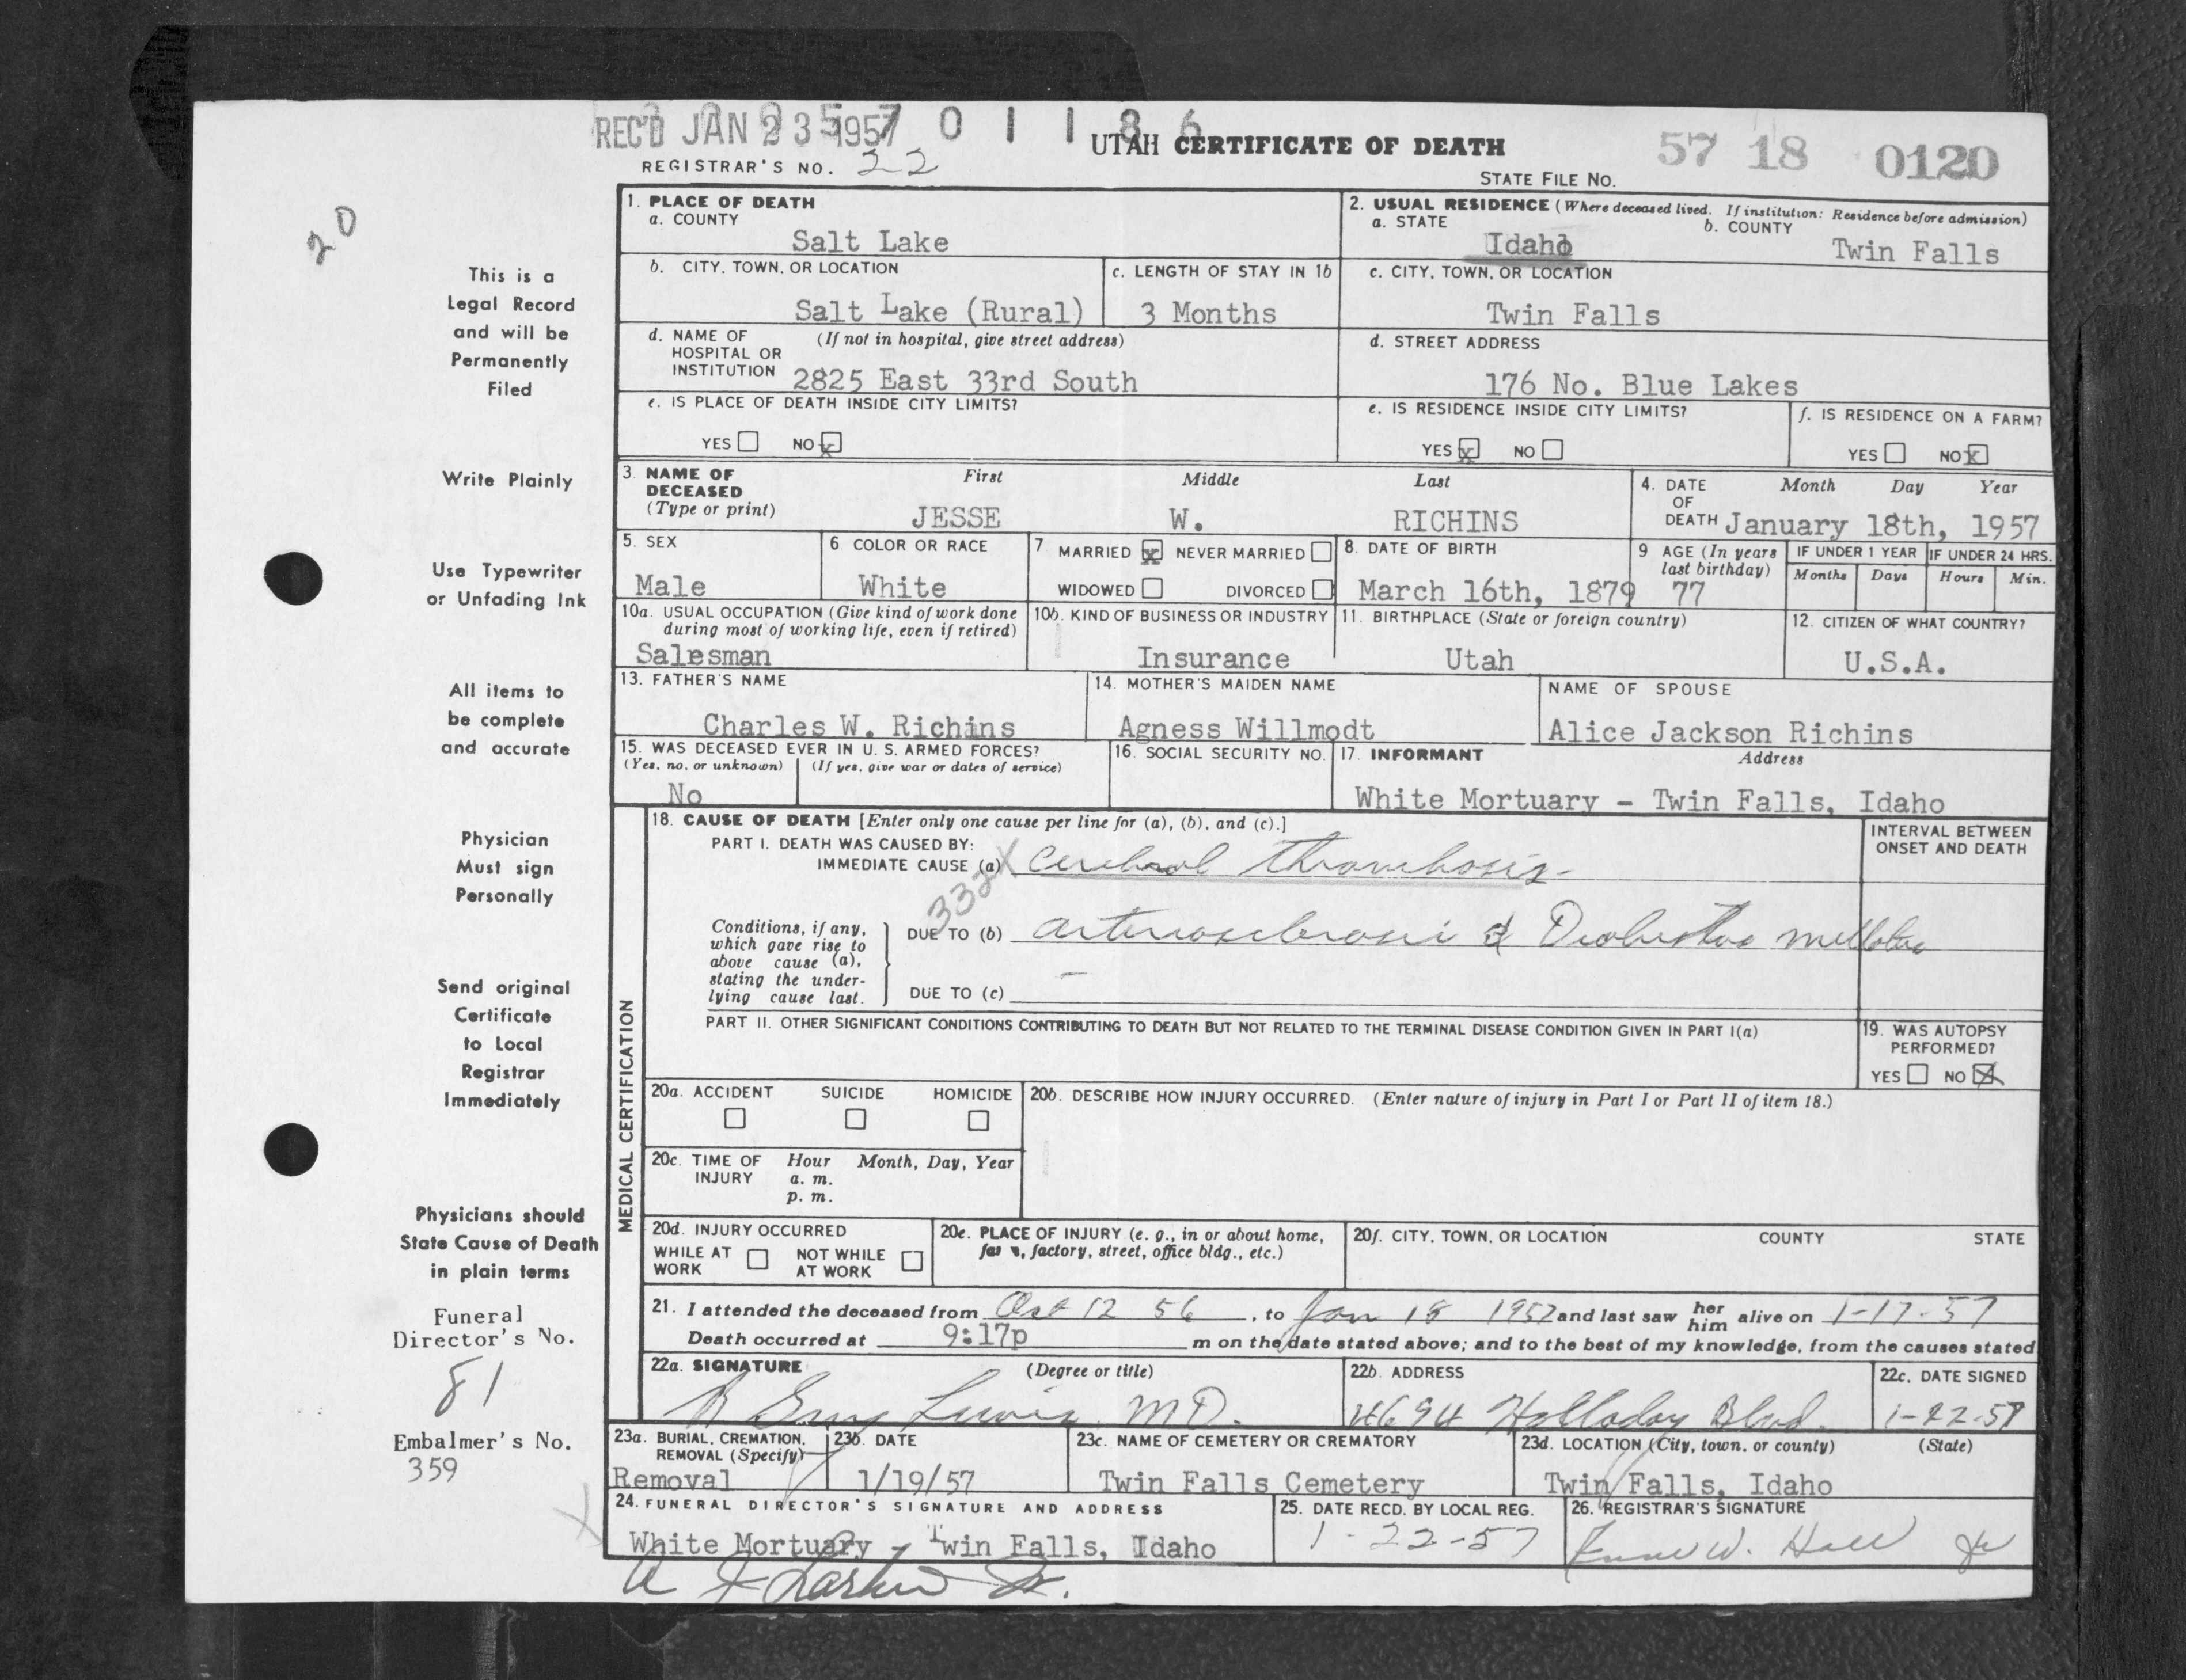 REC'D JAN 23 1957 0 1 1 8 6
UTAH CERTIFICATE OF DEATH
57 18 0120
REGISTRAR'S NO. 22
STATE FILE NO.
20
This is a
Legal Record
and will be
Permanently
Filed
Write Plainly
Use Typewriter
or Unfading Ink
All items to
be complete
and accurate
Physician
Must sign
Personally
Send original
Certificate
to Local
Registrar
Immediately
Physicians should
State Cause of Death
in plain terms
Funeral
Director's No.
81
Embalmer's No.
359
1. PLACE OF DEATH
a. COUNTY
Salt Lake
2. USUAL RESIDENCE (Where deceased lived. If institution: Residence before admission)
a. STATE b. COUNTY
Idaho Twin Falls
b. CITY, TOWN, OR LOCATION
Salt Lake (Rural)
c. LENGTH OF STAY IN 1b
3 Months
c. CITY, TOWN, OR LOCATION
Twin Falls
d. NAME OF (If not in hospital, give street address)
HOSPITAL OR
INSTITUTION 2825 East 33rd South
d. STREET ADDRESS
176 No. Blue Lakes
e. IS PLACE OF DEATH INSIDE CITY LIMITS?
YES NO x
e. IS RESIDENCE INSIDE CITY LIMITS?
YES x NO
f. IS RESIDENCE ON A FARM?
YES NO x
3. NAME OF First Middle Last
DECEASED
(Type or print) JESSE W. RICHINS
4. DATE Month Day Year
OF
DEATH January 18th, 1957
5. SEX
Male
6. COLOR OR RACE
White
7. MARRIED x NEVER MARRIED
WIDOWED DIVORCED
8. DATE OF BIRTH
March 16th, 1879
9. AGE (In years
last birthday)
77
IF UNDER 1 YEAR
Months Days
IF UNDER 24 HRS.
Hours Min.
10a. USUAL OCCUPATION (Give kind of work done
during most of working life, even if retired)
Salesman
10b. KIND OF BUSINESS OR INDUSTRY
Insurance
11. BIRTHPLACE (State or foreign country)
Utah
12. CITIZEN OF WHAT COUNTRY?
U.S.A.
13. FATHER'S NAME
Charles W. Richins
14. MOTHER'S MAIDEN NAME
Agness Willmodt
NAME OF SPOUSE
Alice Jackson Richins
15. WAS DECEASED EVER IN U. S. ARMED FORCES?
(Yes, no, or unknown) (If yes, give war or dates of service)
No
16. SOCIAL SECURITY NO.
17. INFORMANT Address
White Mortuary - Twin Falls, Idaho
MEDICAL CERTIFICATION
18. CAUSE OF DEATH [Enter only one cause per line for (a), (b), and (c).]
PART I. DEATH WAS CAUSED BY:
IMMEDIATE CAUSE (a) Cerebral thrombosis-
332X
INTERVAL BETWEEN
ONSET AND DEATH
Conditions, if any,
which gave rise to
above cause (a),
stating the under-
lying cause last.
DUE TO (b) arteriosclerosis & Diabetes mellitus
DUE TO (c)
PART II. OTHER SIGNIFICANT CONDITIONS CONTRIBUTING TO DEATH BUT NOT RELATED TO THE TERMINAL DISEASE CONDITION GIVEN IN PART I(a)
19. WAS AUTOPSY
PERFORMED?
YES NO X
20a. ACCIDENT SUICIDE HOMICIDE
20b. DESCRIBE HOW INJURY OCCURRED. (Enter nature of injury in Part I or Part II of item 18.)
20c. TIME OF Hour Month, Day, Year
INJURY a. m.
p. m.
20d. INJURY OCCURRED
WHILE AT WORK NOT WHILE AT WORK
20e. PLACE OF INJURY (e. g., in or about home,
factory, street, office bldg., etc.)
20f. CITY, TOWN, OR LOCATION COUNTY STATE
21. I attended the deceased from Oct 12 56, to Jan 18 1957 and last saw her him alive on 1-17-57
Death occurred at 9:17p m on the date stated above; and to the best of my knowledge, from the causes stated
22a. SIGNATURE (Degree or title)
Lewis MD.
22b. ADDRESS
4694 Holladay Blvd.
22c. DATE SIGNED
1-22-57
23a. BURIAL, CREMATION,
REMOVAL (Specify)
Removal
23b. DATE
1/19/57
23c. NAME OF CEMETERY OR CREMATORY
Twin Falls Cemetery
23d. LOCATION (City, town, or county) (State)
Twin Falls, Idaho
24. FUNERAL DIRECTOR'S SIGNATURE AND ADDRESS
White Mortuary - Twin Falls, Idaho
25. DATE RECD. BY LOCAL REG.
1-22-57
26. REGISTRAR'S SIGNATURE
W. Hall Jr